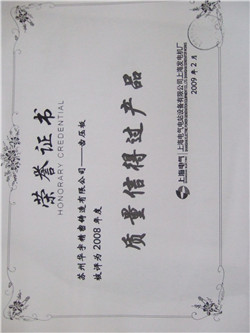 荣誉证书
HONORARY CREDENTIAL
苏州华宇精密铸造有限公司——齿压板
被评为2008年度
质量信得过产品
上海电气 上海电气电站设备有限公司上海发电机厂
2009年2月